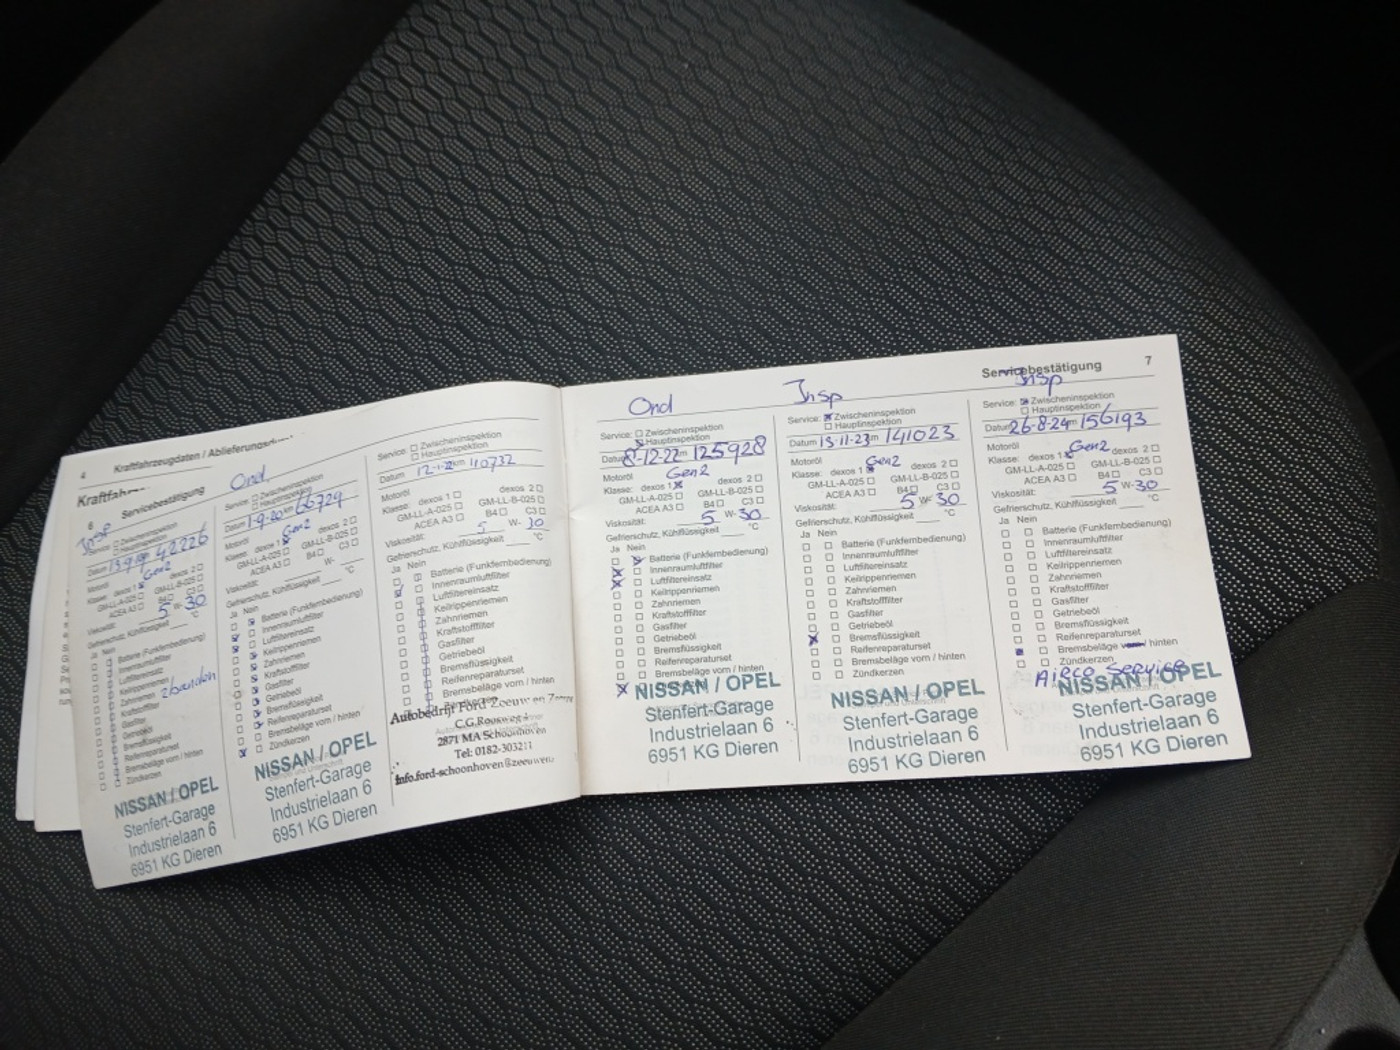 4
Kraftfahrzeugdaten /
6
Servicebestätigung
Insp
Service: Zwischeninspektion
Hauptinspektion
Datum km 42226
Motoröl Gen2
Klasse: dexos 1 dexos 2
GM-LL-A-025 GM-LL-B-025
ACEA A3 B4 C3
Viskosität: 5 W- 30
Gefrierschutz, Kühlflüssigkeit °C
Ja Nein
Batterie (Funkfernbedienung)
Innenraumluftfilter
Luftfiltereinsatz
Keilrippenriemen
Zahnriemen
Kraftstofffilter
Gasfilter
Getriebeöl
Bremsflüssigkeit
Reifenreparaturset
Bremsbeläge vorn / hinten
Zündkerzen
NISSAN / OPEL
Stenfert-Garage
Industrielaan 6
6951 KG Dieren
Ond
Service: Zwischeninspektion
Hauptinspektion
Datum 1-9-20 km
Motoröl Gen2
Klasse: dexos 1 dexos 2
GM-LL-A-025 GM-LL-B-025
ACEA A3 B4 C3
Viskosität: W-
Gefrierschutz, Kühlflüssigkeit °C
Ja Nein
Batterie (Funkfernbedienung)
Innenraumluftfilter
Luftfiltereinsatz
Keilrippenriemen
Zahnriemen
Kraftstofffilter
Gasfilter
Getriebeöl
Bremsflüssigkeit
Reifenreparaturset
Bremsbeläge vorn / hinten
Zündkerzen
NISSAN / OPEL
Stenfert-Garage
Industrielaan 6
6951 KG Dieren
Service: Zwischeninspektion
Hauptinspektion
Datum km 110732
Motoröl
Klasse: dexos 1 dexos 2
GM-LL-A-025 GM-LL-B-025
ACEA A3 B4 C3
Viskosität: 5 W- 30
Gefrierschutz, Kühlflüssigkeit °C
Ja Nein
Batterie (Funkfernbedienung)
Innenraumluftfilter
Luftfiltereinsatz
Keilrippenriemen
Zahnriemen
Kraftstofffilter
Gasfilter
Getriebeöl
Bremsflüssigkeit
Reifenreparaturset
Bremsbeläge vorn / hinten
Autobedrijf Ford Zeeuw en
C.G.Roosweg
2871 MA Schoonhoven
Tel: 0182-303211
info.ford-schoonhoven@zeeuwen
Servicebestätigung 7
Ond
Service: Zwischeninspektion
Hauptinspektion
Datum 8-12-22 km 125928
Motoröl Gen2
Klasse: dexos 1 dexos 2
GM-LL-A-025 GM-LL-B-025
ACEA A3 B4 C3
Viskosität: 5 W- 30
Gefrierschutz, Kühlflüssigkeit °C
Ja Nein
Batterie (Funkfernbedienung)
Innenraumluftfilter
Luftfiltereinsatz
Keilrippenriemen
Zahnriemen
Kraftstofffilter
Gasfilter
Getriebeöl
Bremsflüssigkeit
Reifenreparaturset
Bremsbeläge vorn / hinten
NISSAN / OPEL
Stenfert-Garage
Industrielaan 6
6951 KG Dieren
Insp
Service: Zwischeninspektion
Hauptinspektion
Datum 13-11-23 km 141023
Motoröl Gen2
Klasse: dexos 1 dexos 2
GM-LL-A-025 GM-LL-B-025
ACEA A3 B4 C3
Viskosität: 5 W- 30
Gefrierschutz, Kühlflüssigkeit °C
Ja Nein
Batterie (Funkfernbedienung)
Innenraumluftfilter
Luftfiltereinsatz
Keilrippenriemen
Zahnriemen
Kraftstofffilter
Gasfilter
Getriebeöl
Bremsflüssigkeit
Reifenreparaturset
Bremsbeläge vorn / hinten
Zündkerzen
NISSAN / OPEL
Stenfert-Garage
Industrielaan 6
6951 KG Dieren
Insp
Service: Zwischeninspektion
Hauptinspektion
Datum 26-8-24 km 156193
Motoröl Gen2
Klasse: dexos 1 dexos 2
GM-LL-A-025 GM-LL-B-025
ACEA A3 B4 C3
Viskosität: 5 W- 30
Gefrierschutz, Kühlflüssigkeit °C
Ja Nein
Batterie (Funkfernbedienung)
Innenraumluftfilter
Luftfiltereinsatz
Keilrippenriemen
Zahnriemen
Kraftstofffilter
Gasfilter
Getriebeöl
Bremsflüssigkeit
Reifenreparaturset
Bremsbeläge vorn / hinten
Zündkerzen
Airco Service
NISSAN / OPEL
Stenfert-Garage
Industrielaan 6
6951 KG Dieren